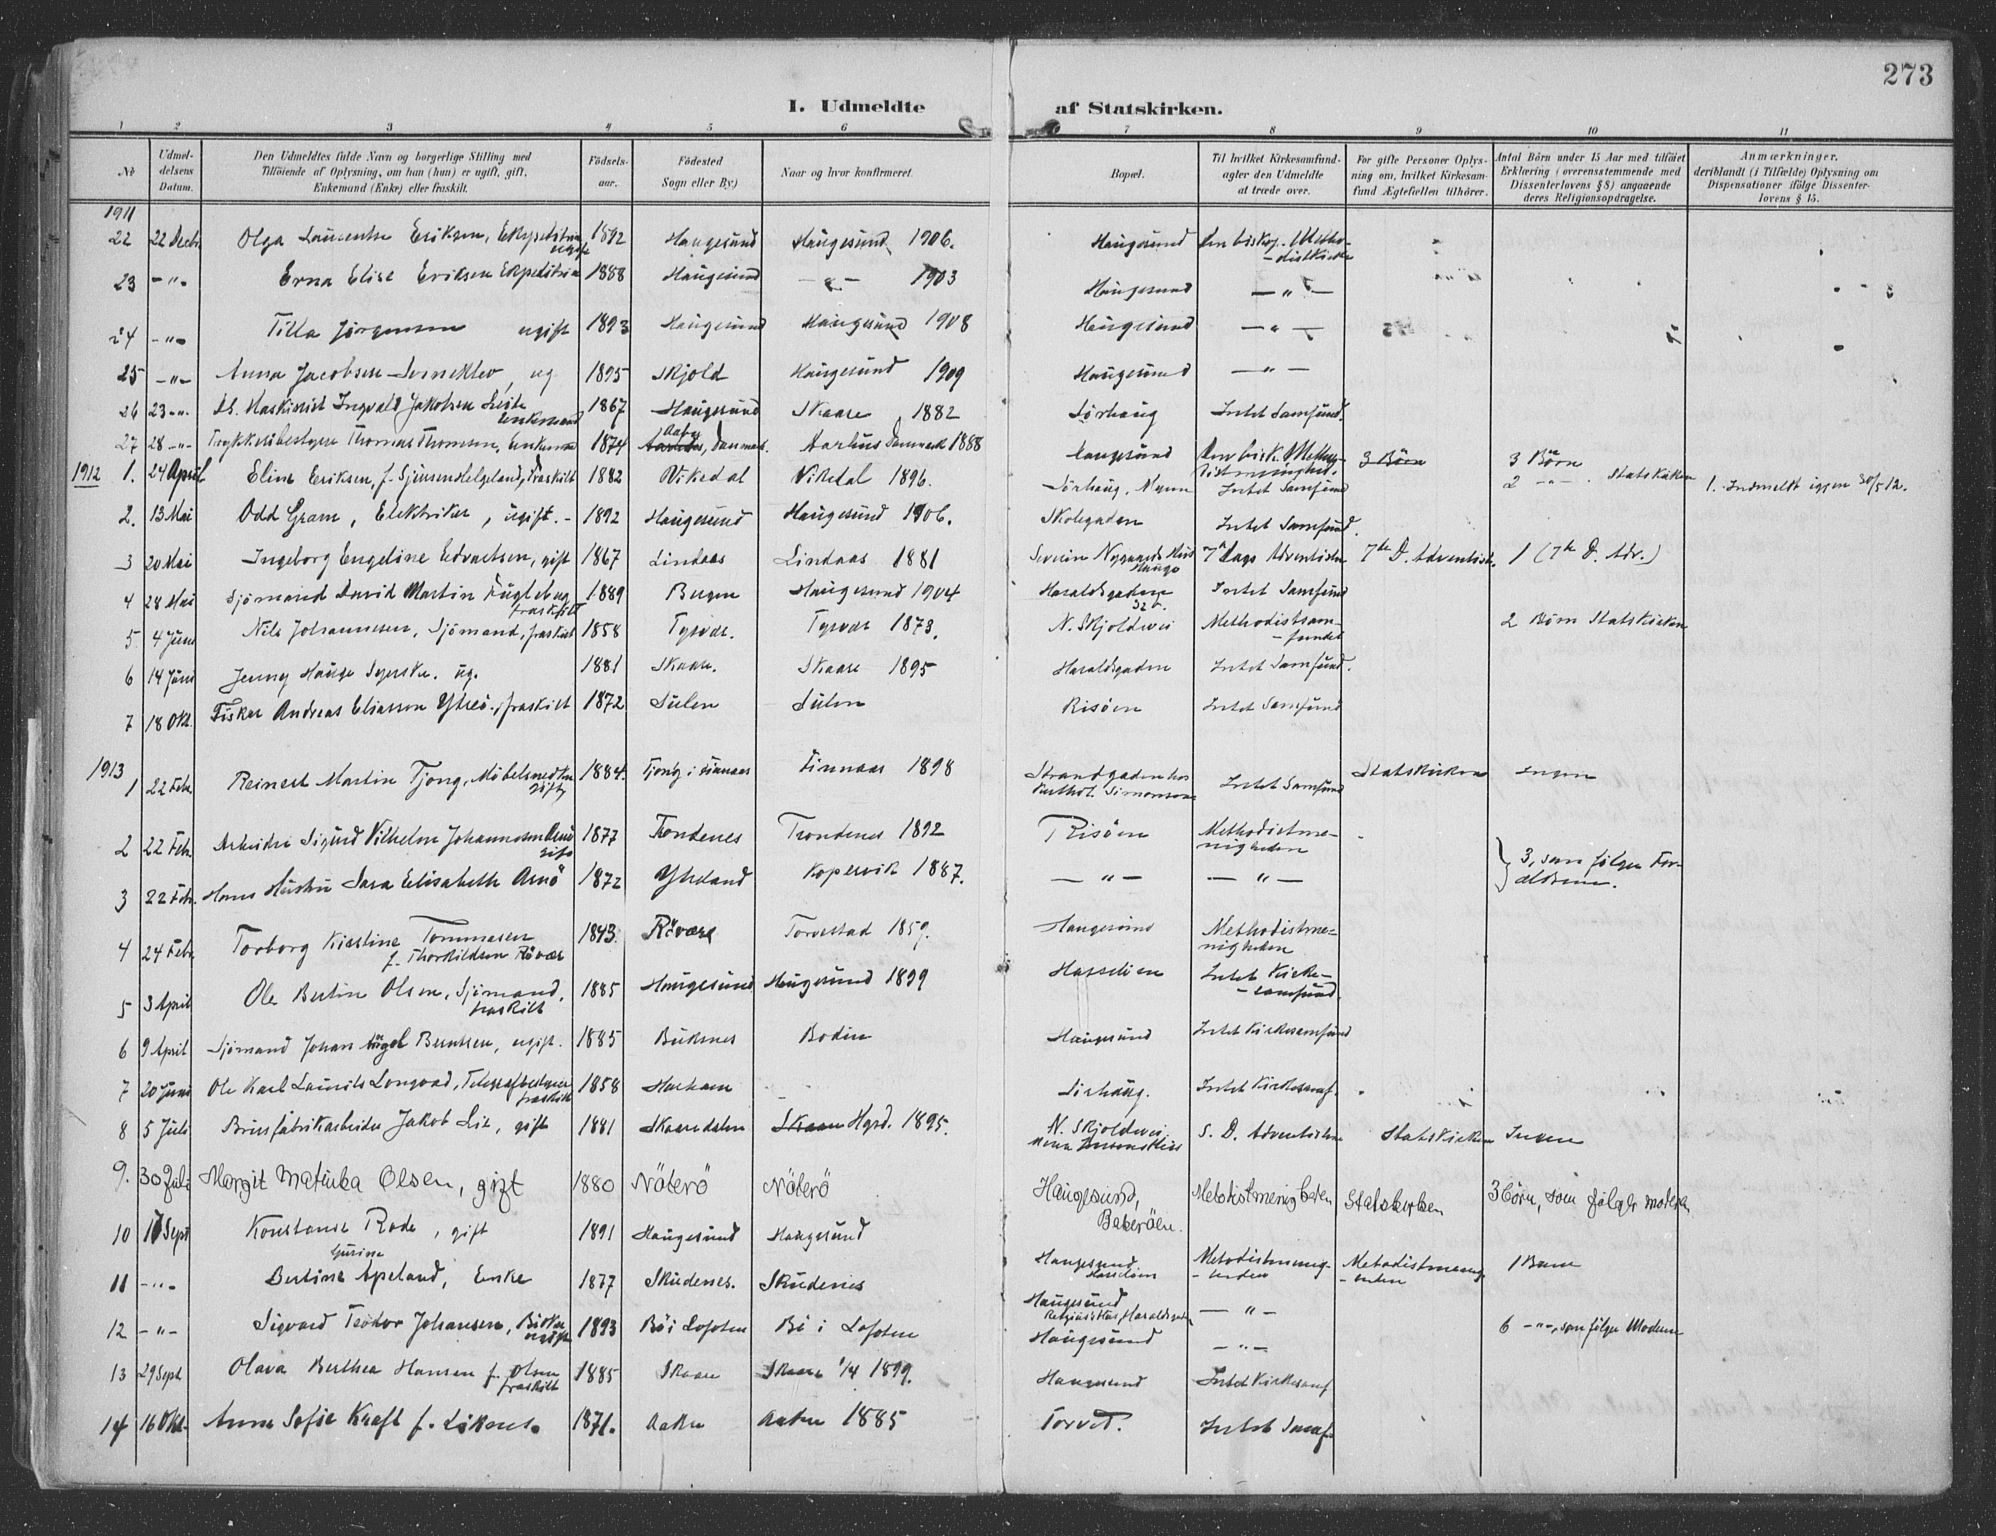 273
I. Udmeldte af Statskirken.
1 2 3 4 5 6 7 8 9 10 11
No
Udmel-
delsens
Datum.
Den Udmeldtes fulde Navn og borgerlige Stilling med
Tilføiende af Oplysning, om han (hun) er ugift, gift,
Enkemand (Enke) eller fraskilt.
Fødsels-
aar.
Fødested
Sogn eller By.)
Naar og hvor konfirmeret.
Bopæl.
Til hvilket Kirkesamfund-
agter den Udmeldte
at træde over.
For gifte Personer Oplys-
ning om, hvilket Kirkesam-
fund Ægtefællen tilhører.
Antal Børn under 15 Aar med tilføiet
Erklæring (overensstemmende med
Dissenterlovens § 8) angaaende
deres Religionsopdragelse.
Anmærkninger.
deriblandt (i Tilfælde) Oplysning om
Dispensationer ifølge Dissenter-
lovens § 15.
1911
22 22 Decbr Olga Eriksen, 1892 Haugesund Haugesund 1906. Haugesund Den biskop. Metho-
ugift - distkirke
23 - " - Erna Elise Eriksen Expeditrice 1888 Haugesund - " - 1903 Haugesund - " -
24 - " - Tilla Jørgensen ugift 1893 Haugesund Haugesund 1908 Haugesund - " -
25 - " - Anna Jacobsen ug 1895 Skjold Haugesund 1909 Haugesund - " -
26 23 - " - Maskinist Ingvald Jakobsen 1867 Haugesund Skaare 1882 Sørhaug Intet Samfund.
Enkemand
27 28 - " - Trykkeribestyrer Thomas Thomsen, Enkemand 1874 Danmark. Aarhus Danmark 1888 Haugesund Den bisk. 3 Børn 3 Børn
1912 1. 24 April Eline Eriksen, f. Fraskilt 1882 Vikedal Vikedal 1896. Sørhaug, Intet Samfund 2 - " - Statskirken 1. Indmeldt igjen 30/5 12.
2. 13 Mai Odd Gram, Elektriker, ugift. - 1892 Haugesund Haugesund 1906. Skolegaden Intet Samfund.
3 20 Mai Ingeborg Engeline Edvartsen, gift 1867 Lindaas Lindaas 1881 Severin Nygaards Hus 7de Dags Adventister 7de D. Adventist. 1 (7de D. Adv.)
Hauge
4 28 Mai Sjömand David Martin 1889 Bergen Haugesund 1904 Haraldsgaden Intet Samfund
fraskilt
5 4 Juni Nils Johannesen, Sjömand, fraskilt 1858 Tysvær. Tysvær 1873. N. Skjoldvei Methodistsam- 2 Børn Statskirken
- fundet
6 14 Juni Jenny Hauge Syerske. ug. 1881 Skaare. Skaare 1895 Haraldsgaden Intet Samfund.
7 18 Okt. Fisker Andreas Eliassen Ytreö., fraskilt 1872 Sulen Sulen Risöen Intet Samfund
1913
1 22 Febr. Reinert Martin Tjong, Möbelsnedker 1884. i Finnaas Finnaas 1898 Strandgaden hos Intet Samfund Statskirken Ingen
gift Simonsen
2 22 Febr. Arbeider Sigurd Vilhelm Johannesen Arnö 1877 Trondenes Trondenes 1892 Risöen Methodistme-
gift nigheden
3 22 Febr. Hans Hustru Sara Elisabeth Arnö 1872 Kopervik 1887. - " - - " - } 3, som følger For-
ældrene.
4 24 Febr. Torborg Kirstine Tommesen 1843. Rövær Torvestad 1859. Haugesund Methodistme-
f. Thorkildsen Rövær nigheden
5 3 April Ole Bertin Olsen, Sjömand, 1885 Haugesund Haugesund 1899 Hasselien Intet Kirke-
fraskilt - samfund.
6 9 April Sjömand Johan Berntsen, ugift. 1885 Buksnes Bodin Haugesund Intet Kirkesamfund
7 20 Juni Ole Karl Laurits Longvad, Telegrafbestyrer 1858 Harham Sörhaug. Intet Kirkesamf.
fraskilt
8 5 Juli Brusfabrikarbeider Jakob Lie, gift 1881 Skaaredalen Skaare Hgsd. 1895. N. Skjoldvei S. D. Adventisterne Statskirken Ingen
9. 30 Juli Margit Matinka Olsen, gift 1880 Nöterö Nöterö Haugesund, Metodistmenigheten Statskirken 3 börn, som fölger moderen
Bakeröen.
10 17 Sept Konstanse Rode, gift 1891 Haugesund Haugesund Haugesund Metodistmenig- Metodistmenig- 1 Barn
Hasseløen - heden - heden
11 - " - Bertine Gurine Apeland, Enke 1877 Skudenes. Skudenes Haugesund - " - 6 - " -, som følger Moderen
12 - " - Sigvard Teodor Johansen, 1893 Bö i Lofoten Bö i Lofoten Haugesund - " -
ugift
13 29 Sept Olava Berthea Hansen f. Olsen 1885 Skaare Skaare 1/4 1899. Haugesund Intet Kirkesamf
fraskilt
14 16 Okt. Anna Sofie Kraft f. Liknes. 1871. Aakre Aakre 1885 Torvet. Intet Samf.